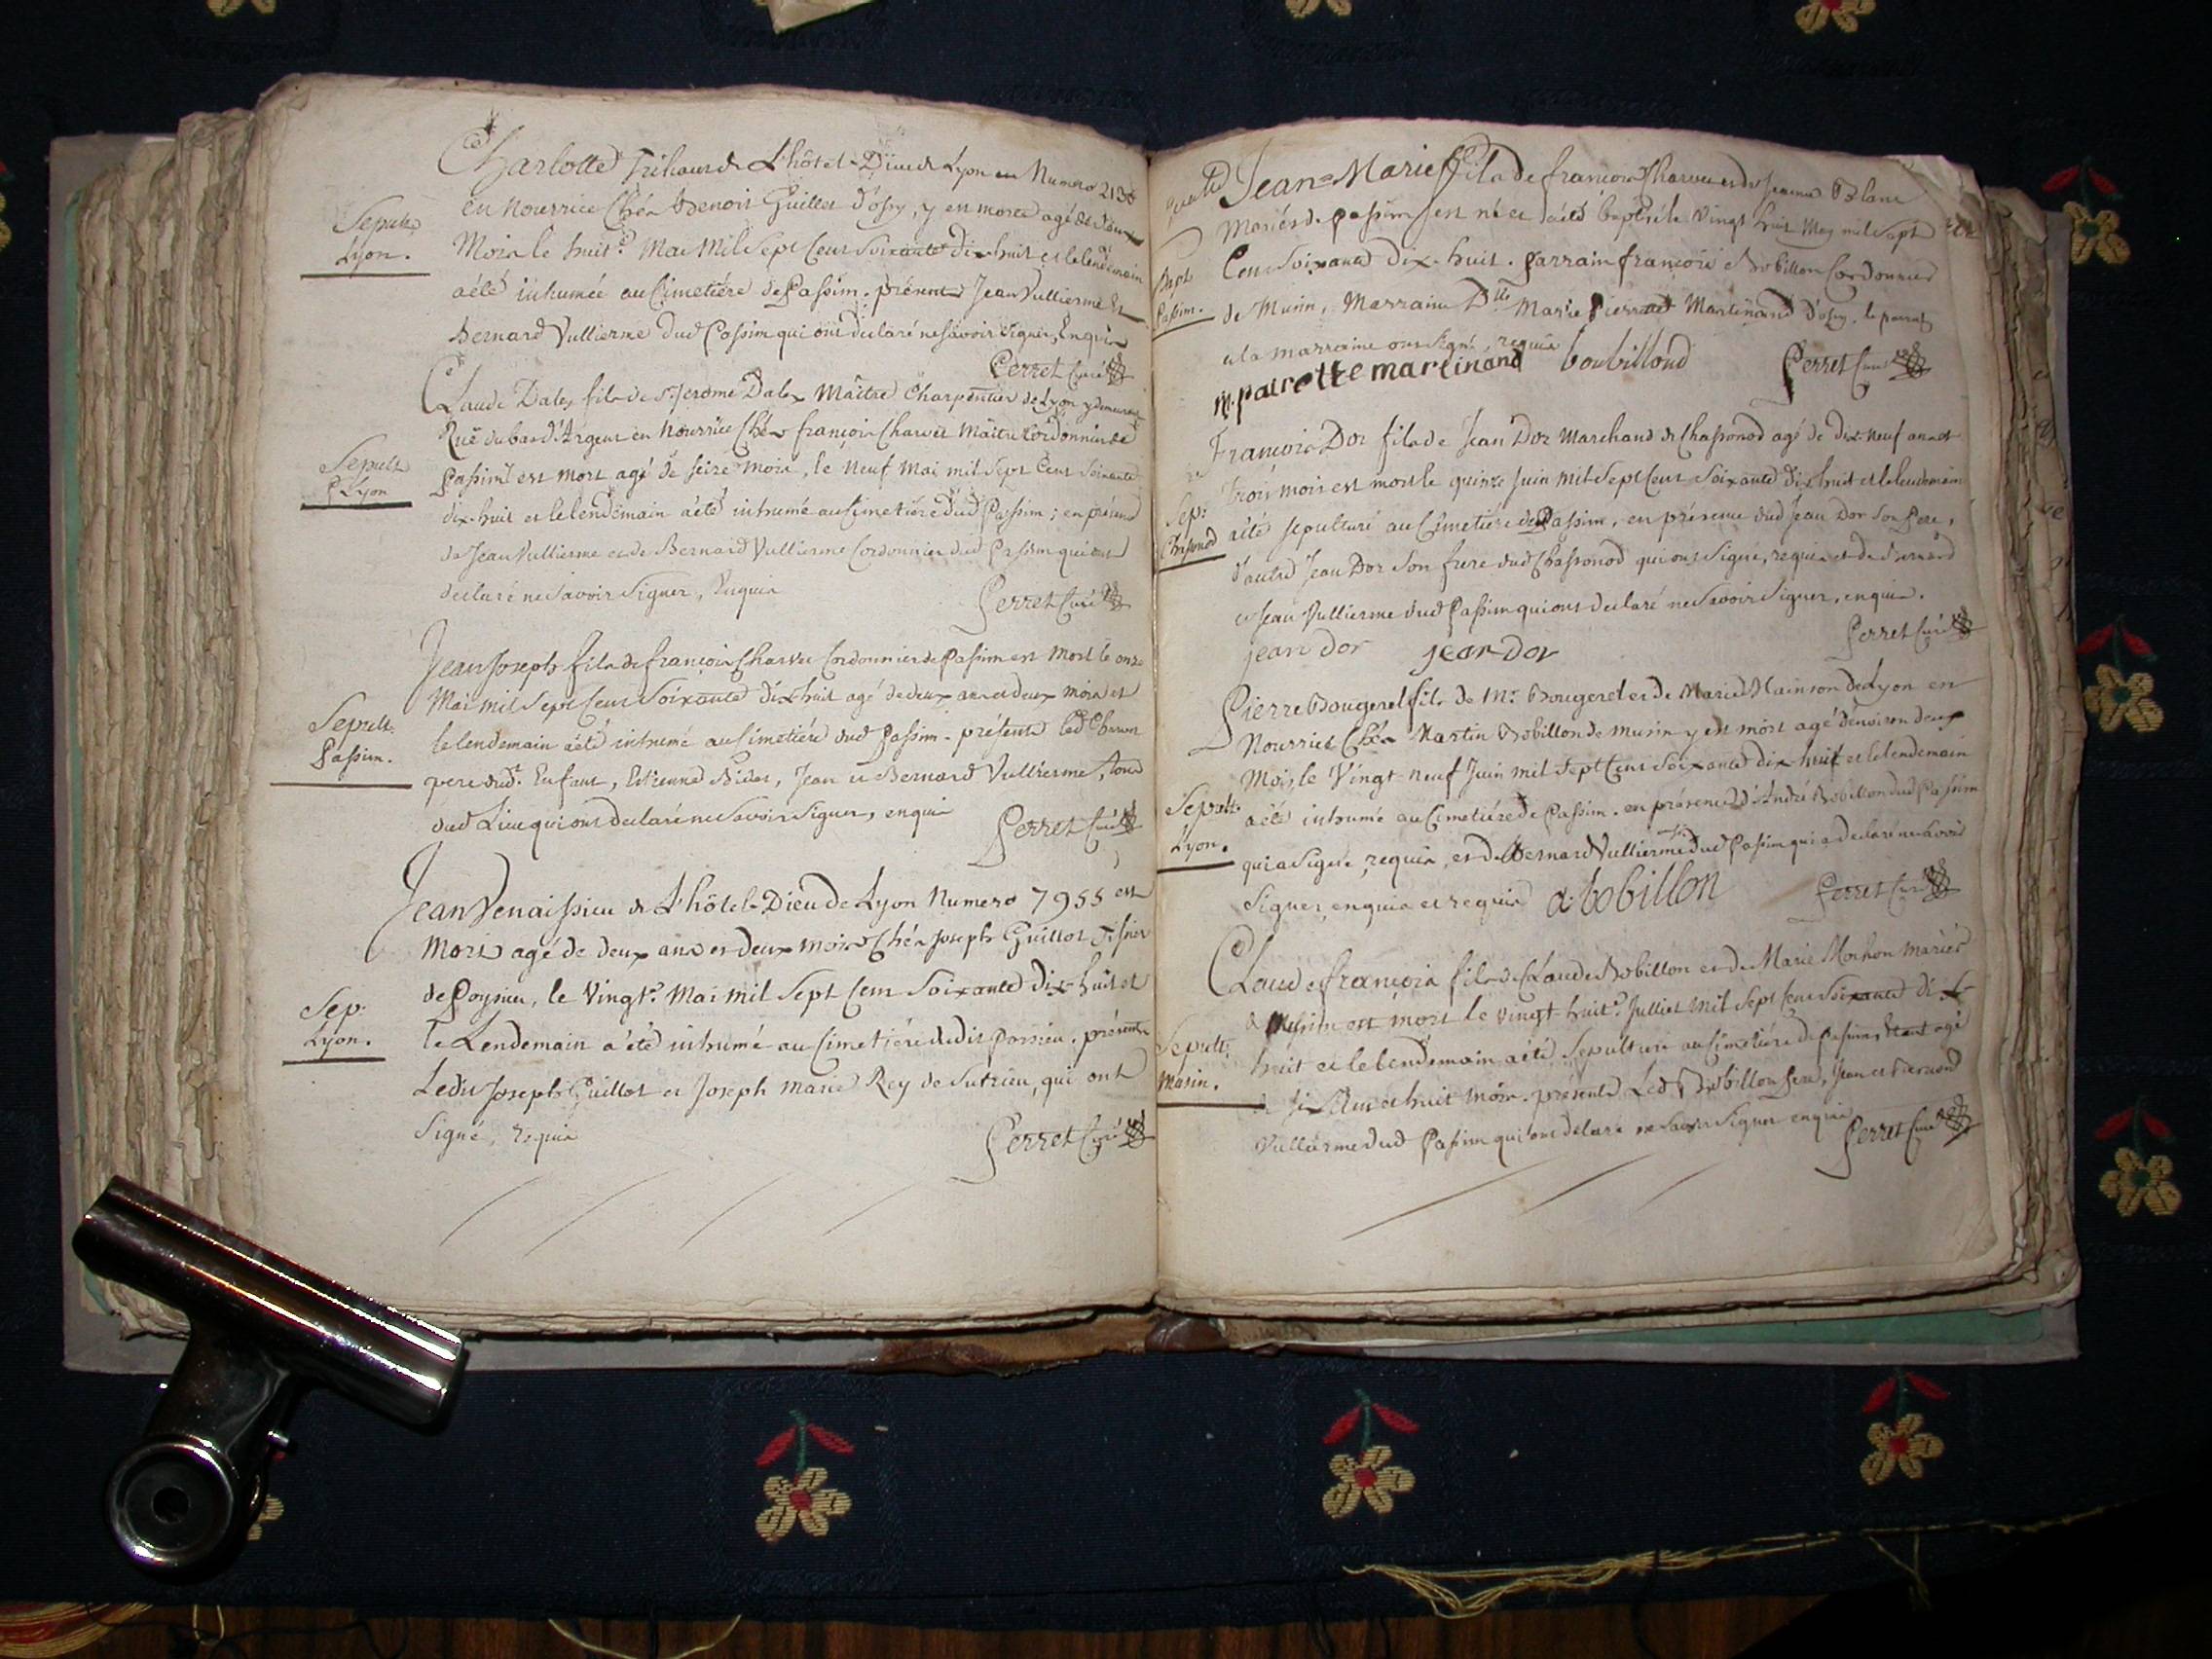 Charlotte de L'hôtel-Dieu de Lyon
Sepult.
Lyon.
en Nourrice Chés Benoit Guillet d'ossy, y est morte agée de deux
Mois le huit.e Mai Mil Sept Cent Soixante Dix-huit et le lendemain
a été inhumée au Cimetiére de Passim. présents Jean Vullierme Et
Bernard Vullierme dud Passim qui ont declaré ne Savoir Signer, Enquis
Perret Curé
Claude Dalex fils de Sr Jerome Dalex Maitre Charpentier de Lyon y demeurant
Ruë du bas d'Argent en Nourrice Chés françois Charvet Maitre Cordonnier de
Sepult
Lyon
Passim est mort agé de seize mois, le Neuf Mai mil Sept Cent Soixante
dix-huit et le lendemain a été inhumé au Cimetiére dud Passim; en présence
de Jean Vullierme et de Bernard Vullierme Cordonnier dud Passim qui ont
declaré ne Savoir Signer, Enquis
Perret Curé
Jean Joseph fils de françois Charvet Cordonnier de Passim est Mort le onze
Mai mil Sept Cent Soixante dix-huit agé de deux ans et deux mois et
Sepult.
Passim.
le lendemain a été inhumé au Cimetiére dud Passim. présents led Charvet
pere dud. Enfant, Etienne , Jean et Bernard Vullierme, tous
dud Lieu qui ont declaré ne Savoir Signer, enquis
Perret Curé
Jean Venaissieu de L'hôtel-Dieu de Lyon Numero 7955 est
Mort agé de deux ans et deux mois Chés Joseph Guillot
de Poysieu, le Vingt.e Mai mil Sept Cent Soixante dix-huit et
Sep.
Lyon.
le Lendemain a été inhumé au Cimetiére dudit . présents
Ledit Joseph Guillot et Joseph Marie Rey de Sutrieu, qui ont
Signé, Requis
Perret Curé
Jean-Marie fils de françois Charvet et de Jeanne Blanc
Mariés de passim est né et a été baptisé le Vingt huit May mil Sept
Bapt.
Passim.
Cent Soixante Dix-huit. Parrain françois Bobillon Cordonnier
de Musin, Marraine Dlle Marie Pierrette Martinand d'ossy. le parrain
et la marraine ont signé, requis
m. pairette martinand boubilloud Perret Curé
François Dor fils de Jean Dor Marchand de Chassonod agé de dix-Neuf ans et
trois mois est mort le quinze Juin Mil Sept Cent Soixante dix huit et le lendemain
Sep:
Chassonod
a été sepulturé au Cimetiére de Passim, en présence dud Jean Dor Son Pere,
d'autre Jean Dor Son frere dud Chassonod qui ont Signé, requis et de Bernard
et Jean Vullierme dud Passim qui ont declaré ne Savoir Signer, enquis.
jean dor jean dor
Perret Curé
Pierre Bougeret fils de Mr. Bougeret et de Marie Mainson de Lyon en
Nourrice Chés Martin Bobillon de musin y est mort agé d'environ deux
Mois, le Vingt-neuf Juin mil Sept Cent Soixante dix-huit et le lendemain
Sepult.
Lyon.
a été inhumé au Cimetiére de Passim. en présence d'André Bobillon dud Passim
qui a Signé, requis, et de Bernard Vullierme dud Passim qui a declaré ne Savoir
Signer, enquis et requis a. bobillon Perret Curé
Claude françois fils de Claude Bobillon et de Marie Mochon Mariés
de Musin est mort le vingt-huit.e Julliet Mil Sept Cent Soixante dix
Sepult.
Musin.
huit et le lendemain a été Sepulturé au Cimetiére de passim, étant agé
de ans et huit mois. présents Led Bobillon pere, Jean et Bernard
Vullierme dud Passim qui ont declaré ne Savoir Signer enquis
Perret Curé